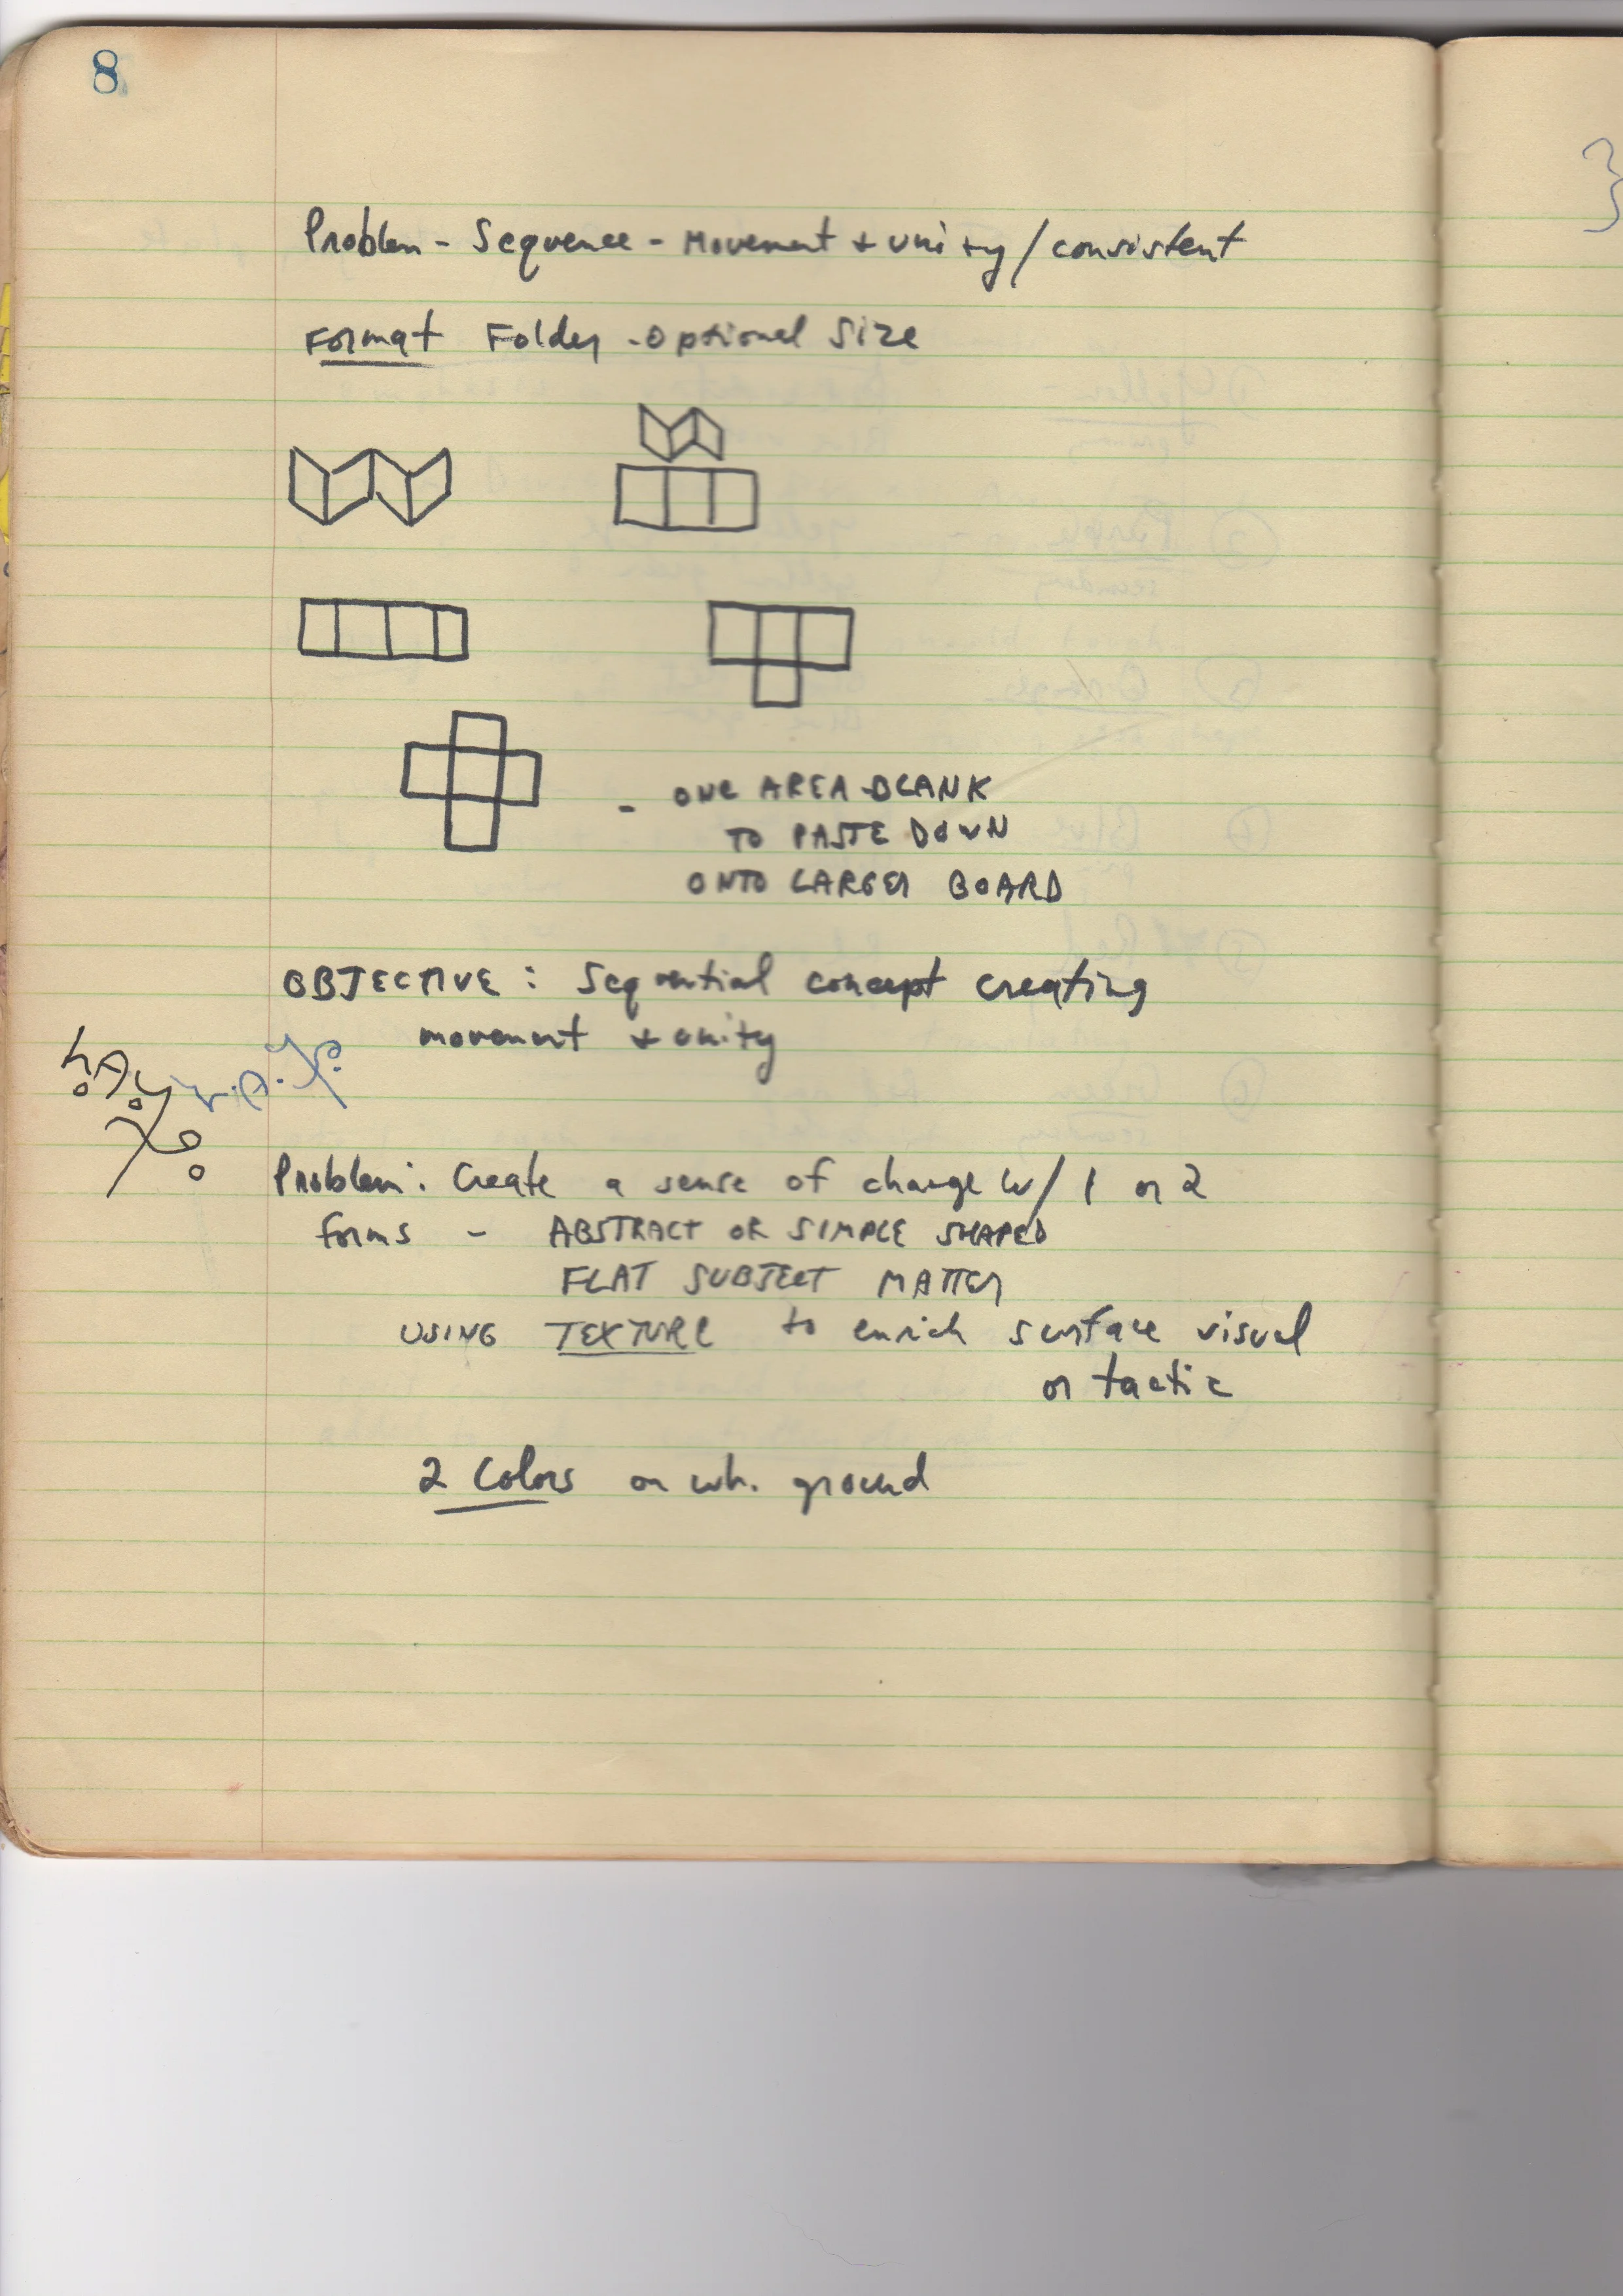 8
Problem - Sequence - Movement + unity / consistent
Format Folder - Optional Size
- ONE AREA BLANK
TO PASTE DOWN
ONTO LARGER BOARD
OBJECTIVE: Sequential concept creating
movement + unity
Problem: Create a sense of change w/ 1 or 2
forms - ABSTRACT OR SIMPLE SHAPED
FLAT SUBJECT MATTER
USING TEXTURE to enrich surface visual
or tactic
2 Colors on wh. ground